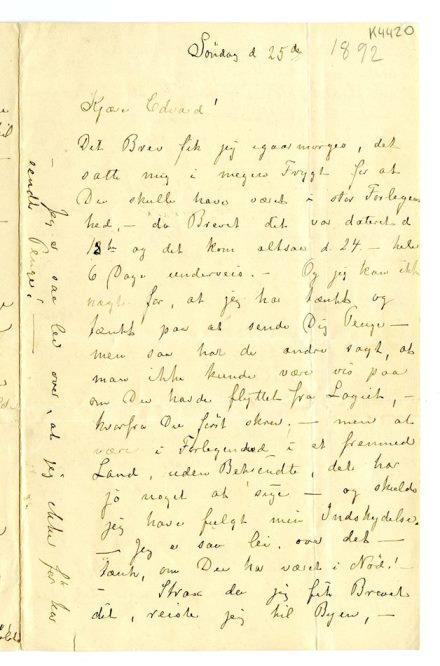 K4420
Søndag d 25de
1892
Kjære Edvard!
Dit Brev fik jeg igaarmorges, det
satte mig i megen Frygt for at
Du skulle have været i stor Forlegen
hed, – da Brevet dit var dateret d
18de og det kom altsaa d. 24. – hele
6 Dage underveis. – Og jeg kan ikke
nægte for, at jeg har tænkt og
tænkt paa at sende Dig Penge –
men saa har de andre sagt, at
man ikke kunde være vis paa
om Du havde flyttet fra Logiet, –
hvorfra Du først skrev. – men at
være i Forlegenhed i et fremmed
Land, uden Bekjendte, det har
jo noget at sige – og skulde
jeg have fulgt min Indskydelse.
– Jeg er saa lei over det –
tænk, om Du har været i Nød! –
– Strax da jeg fik Brevet
dit, reiste jeg til Byen, –
– Jeg er saa lei over, at jeg ikke før har
sendt Penge! –